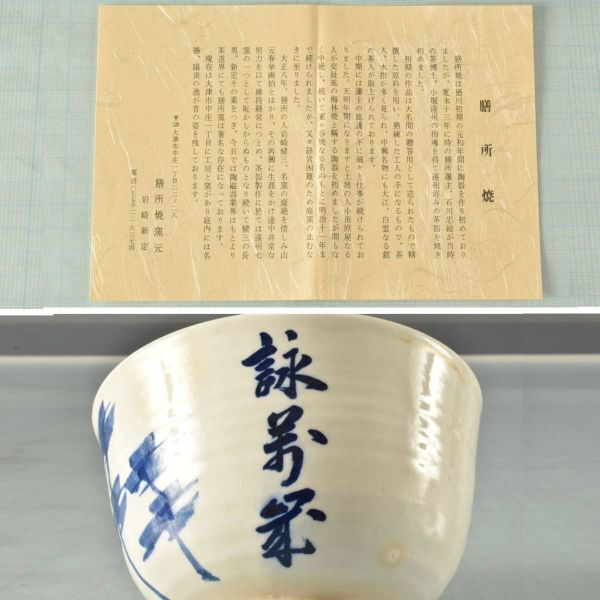 膳所焼
膳所焼は徳川初期の元和年間に陶器を作り初めており
ましたが、寛永十三年に時の膳所藩主、石川忠総が当時
の茶博士、小堀遠州の指導を得て遠州好みの茶器を焼き
初めました。
初期の作品は大名間の贈答用として造られたもので精
撰した原料を用い、熟練した工人の手になるもので、茶
人、水指が多く見られ、中興名物にも大江、白雲なる銘
の茶入が取上げられております。
中期には藩主の庇護の下に細々と仕事が続けられてお
りました。天明年間になりますと土地の人小田原屋なる
人が交趾風の梅林焼と稱する陶器を初めましたが間もな
く中絶し、続いて雀ヶ谷焼なる名のもとに明治十一年ま
で続けられましたが、又々経営困難のため廃窯の止むな
きに至りました。
大正八年、膳所の人岩崎健三、名窯の廃絶を惜しみ山
元春挙画伯とはかり、その再興に生涯をかけ途中非常な
努力を以て維持経営につとめ、茶器製作に於ては遠州七
窯の一つとして恥かしからぬものとなり続いて健三の長
男、新定その業をつぎ、今日では陶磁器業界はもとより
茶道界にても膳所窯は著名な存在になっております。
現在は大津市中庄一丁目に工房と窯があり庭内には名
勝、陽炎の池が昔の姿を残しております。
大津市中庄一丁目二二ノ二八
膳所焼窯元
岩崎新定
詠萬歳